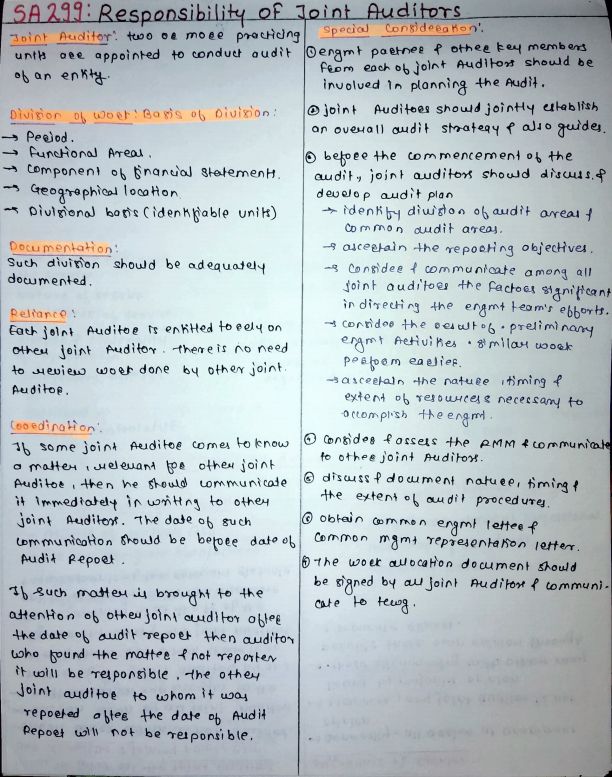 SA 299: Responsibility of Joint Auditors
Joint Auditor: two or more practicing
units are appointed to conduct audit
of an entity.
Division of work: Basis of Division:
→ Period.
→ Functional Areas.
→ Component of financial statements.
→ Geographical location.
→ Divisional basis (identifiable units)
Documentation:
Such division should be adequately
documented.
Reliance:
Each joint Auditor is entitled to rely on
other joint Auditor. There is no need
to review work done by other joint
Auditor.
Coordination:
If some joint Auditor comes to know
a matter, relevant for other joint
Auditor, then he should communicate
it immediately in writing to other
joint Auditors. The date of such
communication should be before date of
Audit Report.
If such matter is brought to the
attention of other joint auditor after
the date of audit report then auditor
who found the matter & not reporter
it will be responsible. The other
joint auditor to whom it was
reported after the date of Audit
Report will not be responsible.
Special Consideration:
① engmt partner & other key members
from each of joint Auditors should be
involved in planning the Audit.
② joint Auditors should jointly establish
an overall audit strategy & also guides.
③ before the commencement of the
audit, joint auditors should discuss &
develop audit plan
→ identify division of audit areas &
common audit areas.
→ ascertain the reporting objectives.
→ Consider & communicate among all
joint auditors the factors significant
in directing the engmt team's efforts.
→ consider the result of • preliminary
engmt Activities • similar work
perform earlier.
→ ascertain the nature, timing &
extent of resources necessary to
accomplish the engmt.
④ Consider & assess the RMM & communicate
to other joint Auditors.
⑤ discuss & document nature, timing &
the extent of audit procedures.
⑥ obtain common engmt letter &
common mgmt representation letter.
⑦ The work allocation document should
be signed by all joint Auditors & communi-
cate to tcwg.